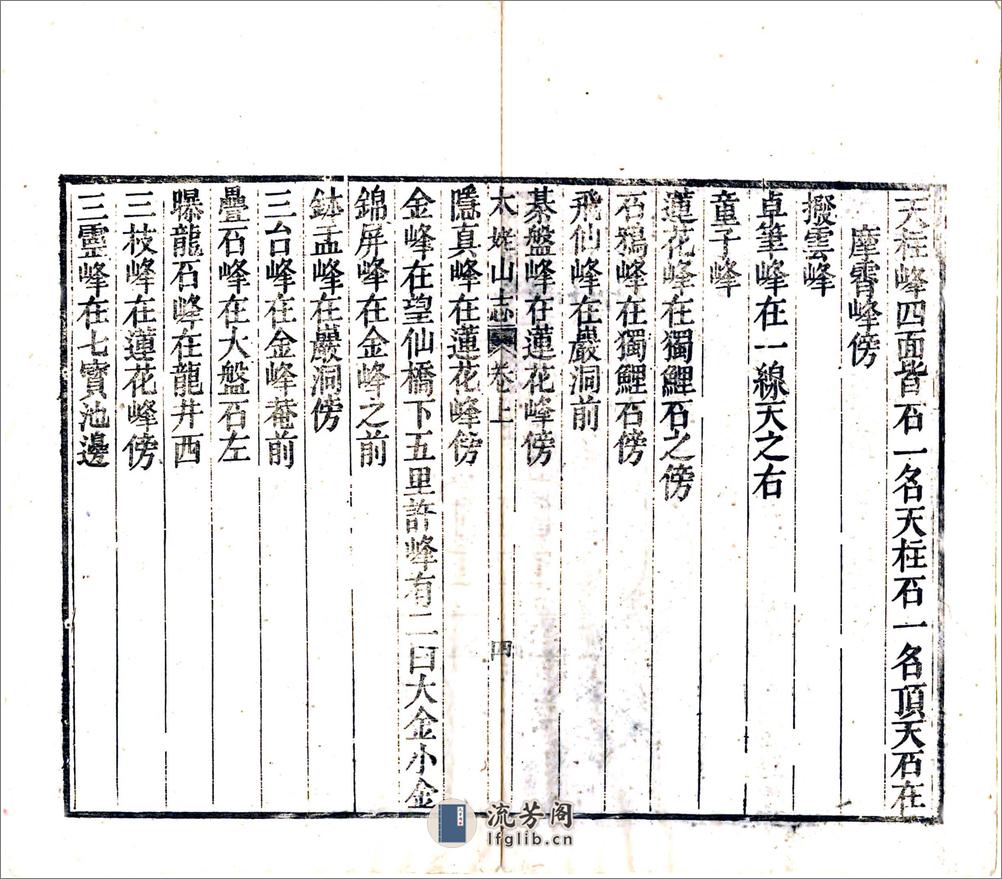 天柱峰四面皆石一名天柱石一名頂天石在
摩霄峰傍
撥雲峰
卓筆峰在一線天之右
童子峰
蓮花峰在獨鯉石之傍
石鴉峰在獨鯉石傍
飛仙峰在巖洞前
棊盤峰在蓮花峰傍
太姥山志 卷上 四
隱真峰在蓮花峰傍
金峰在望仙橋下五里許峰有二曰大金小金
錦屏峰在金峰之前
鉢盂峰在巖洞傍
三台峰在金峰菴前
疊石峰在大盤石左
曝龍石峰在龍井西
三枝峰在蓮花峰傍
三靈峰在七寶池邊
流芳阁
lfglib.cn